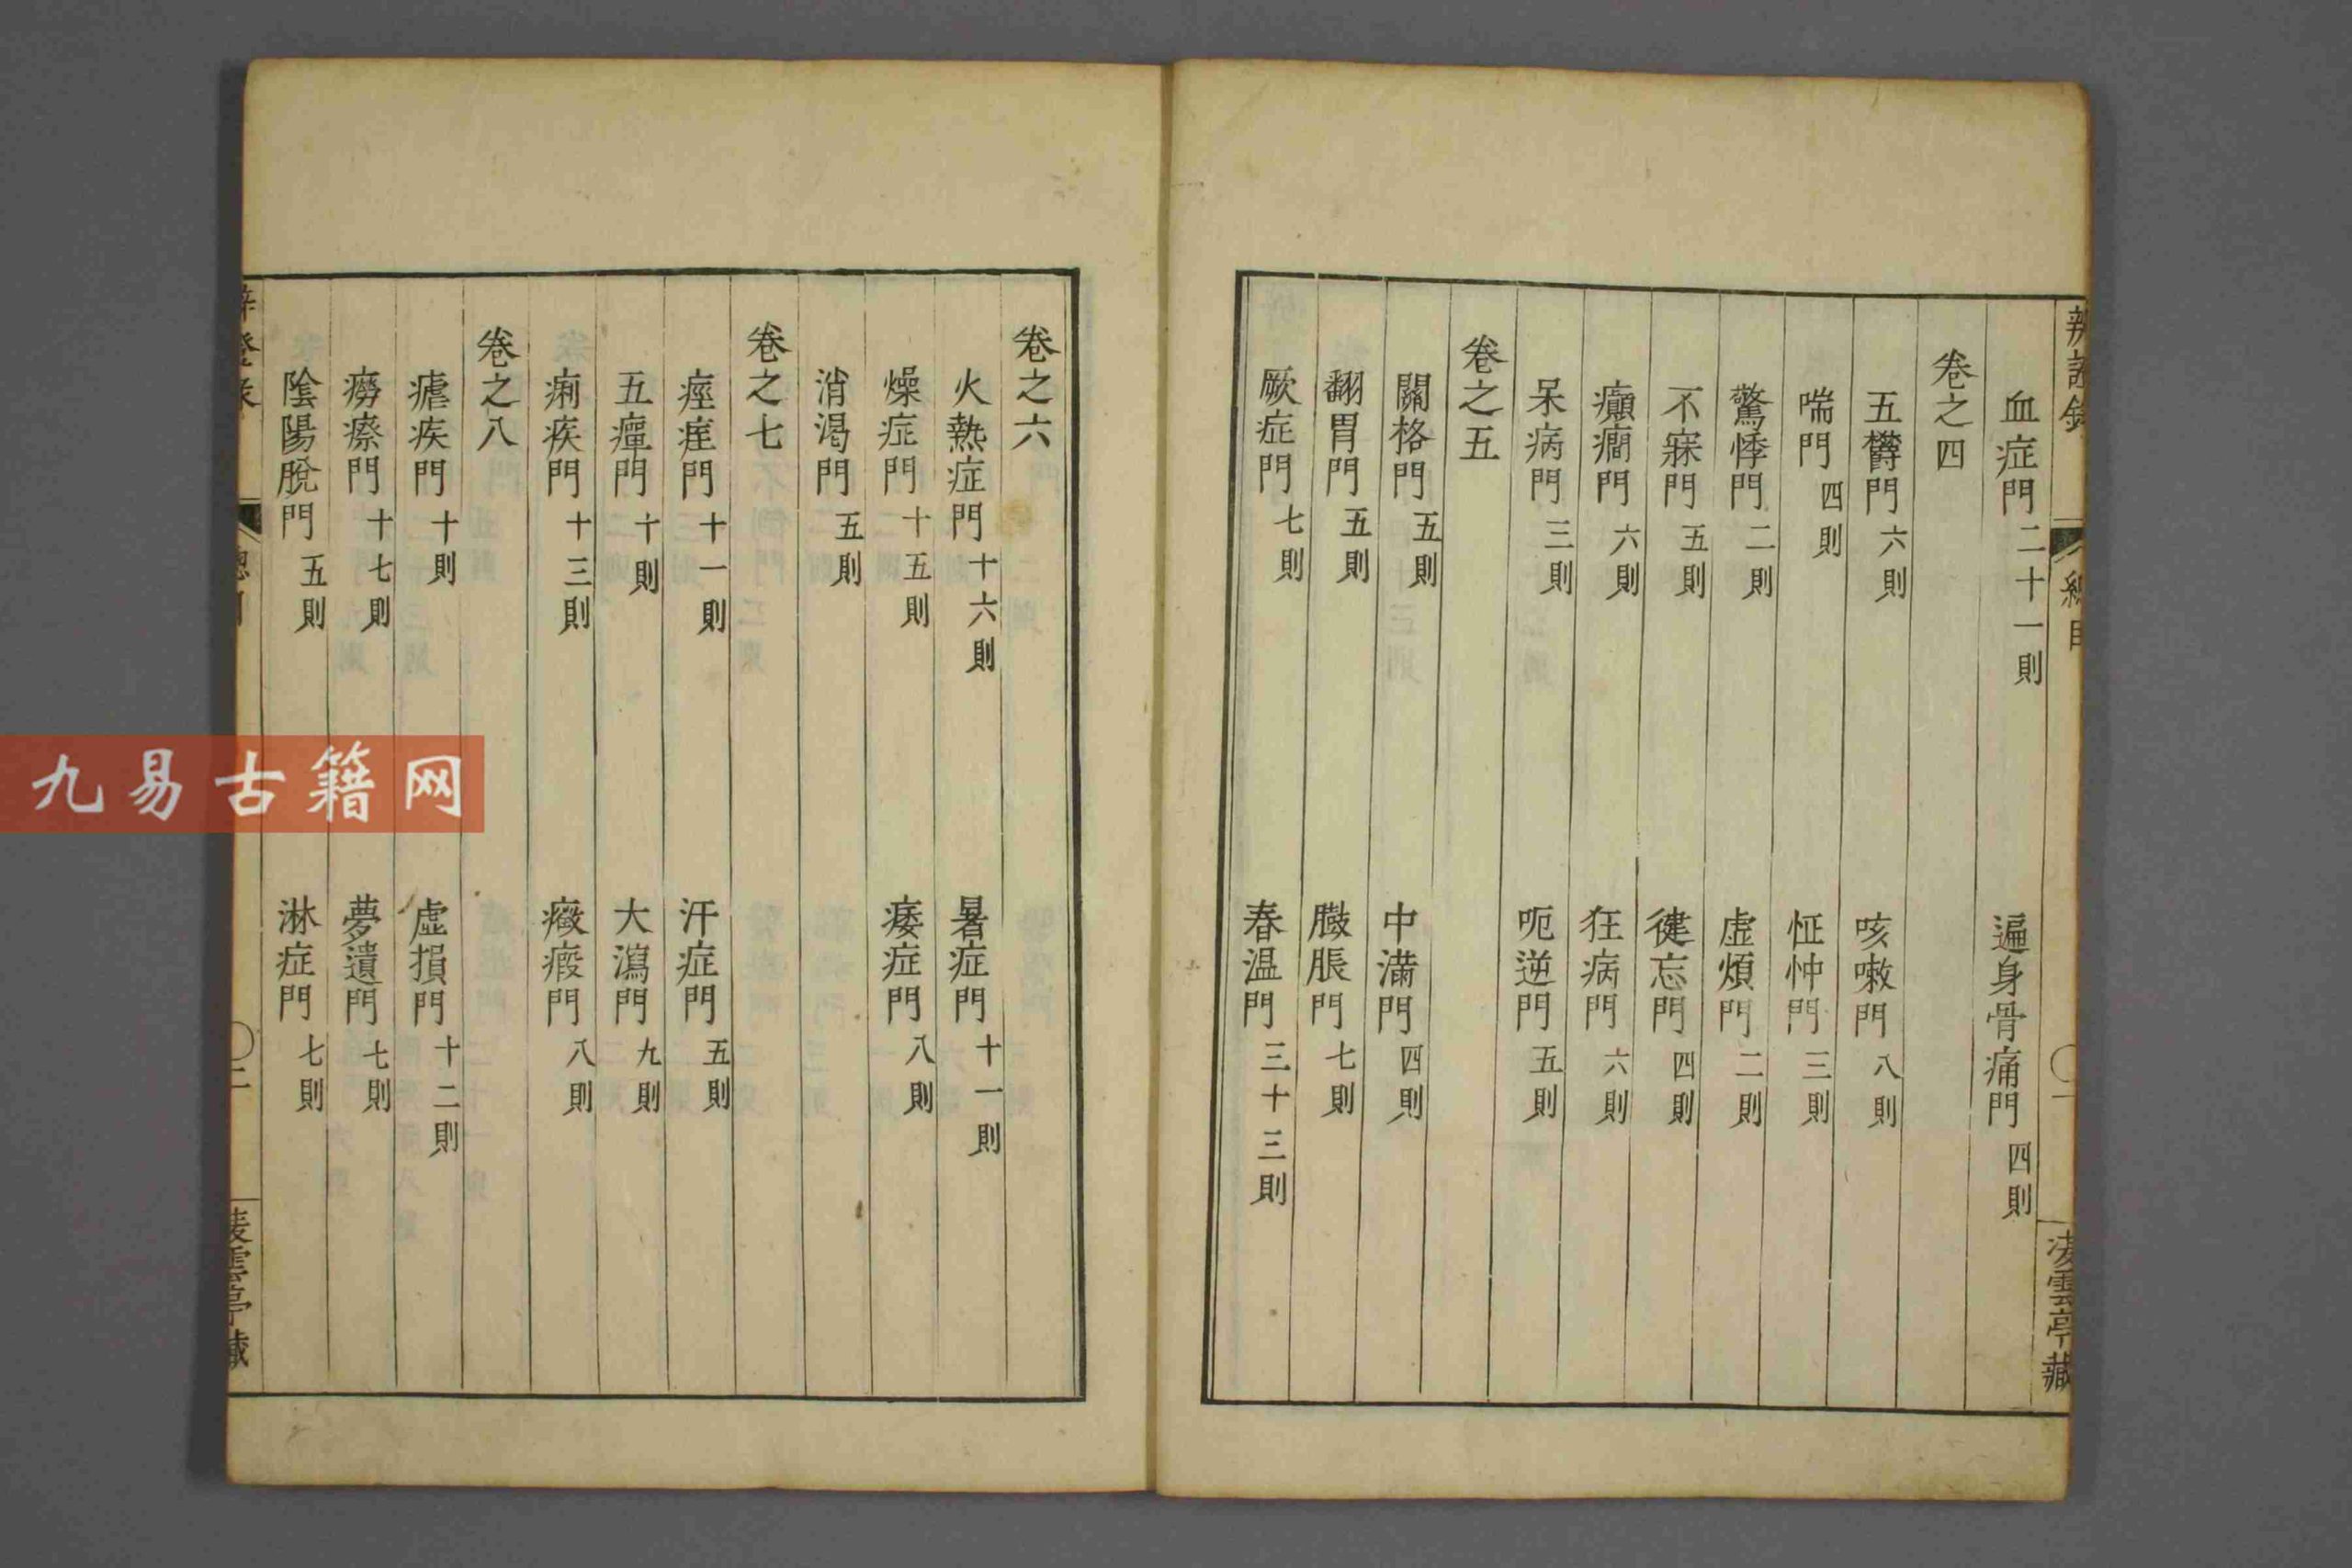 辨證錄 總目 一 凌雲亭藏
血症門 二十一則 遍身骨痛門 四則
卷之四
五欝門 六則 咳嗽門 八則
喘門 四則 怔忡門 三則
驚悸門 二則 虛煩門 二則
不寐門 五則 健忘門 四則
癲癎門 六則 狂病門 六則
呆病門 三則 呃逆門 五則
卷之五
關格門 五則 中滿門 四則
翻胃門 五則 臌脹門 七則
厥症門 七則 春温門 三十三則
卷之六
火熱症門 十六則 暑症門 十一則
燥症門 十五則 痿症門 八則
消渴門 五則
卷之七
痙痓門 十一則 汗症門 五則
五癉門 十則 大瀉門 九則
痢疾門 十三則 癥瘕門 八則
卷之八
瘧疾門 十則 虛損門 十二則
癆瘵門 十七則 夢遺門 七則
陰陽脫門 五則 淋症門 七則
辨證錄 總目 二 凌雲亭藏
九易古籍网